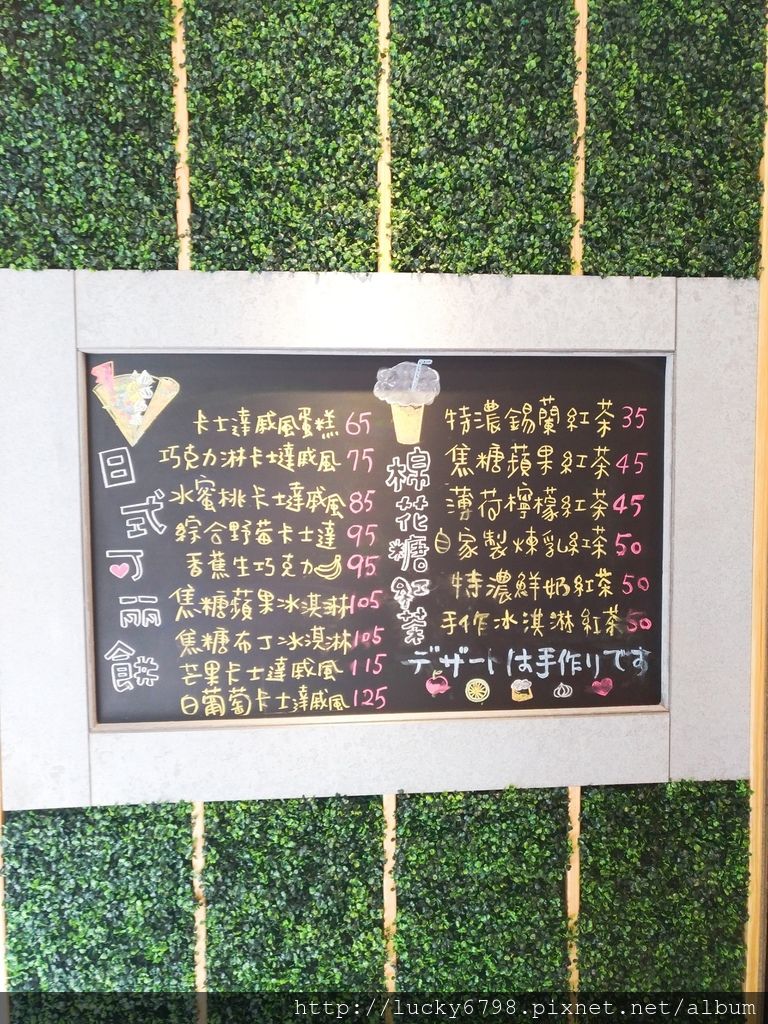 日式可丽餅
卡士達戚風蛋糕 65
巧克力淋卡士達戚風 75
水蜜桃卡士達戚風 85
綜合野莓卡士達 95
香蕉生巧克力 95
焦糖蘋果冰淇淋 105
焦糖布丁冰淇淋 105
芒果卡士達戚風 115
白葡萄卡士達戚風 125
棉花糖紅茶
特濃錫蘭紅茶 35
焦糖蘋果紅茶 45
薄荷檸檬紅茶 45
自家製煉乳紅茶 50
特濃鮮奶紅茶 50
手作冰淇淋紅茶 50
デザートは手作りです
http://lucky6798.pixnet.net/album